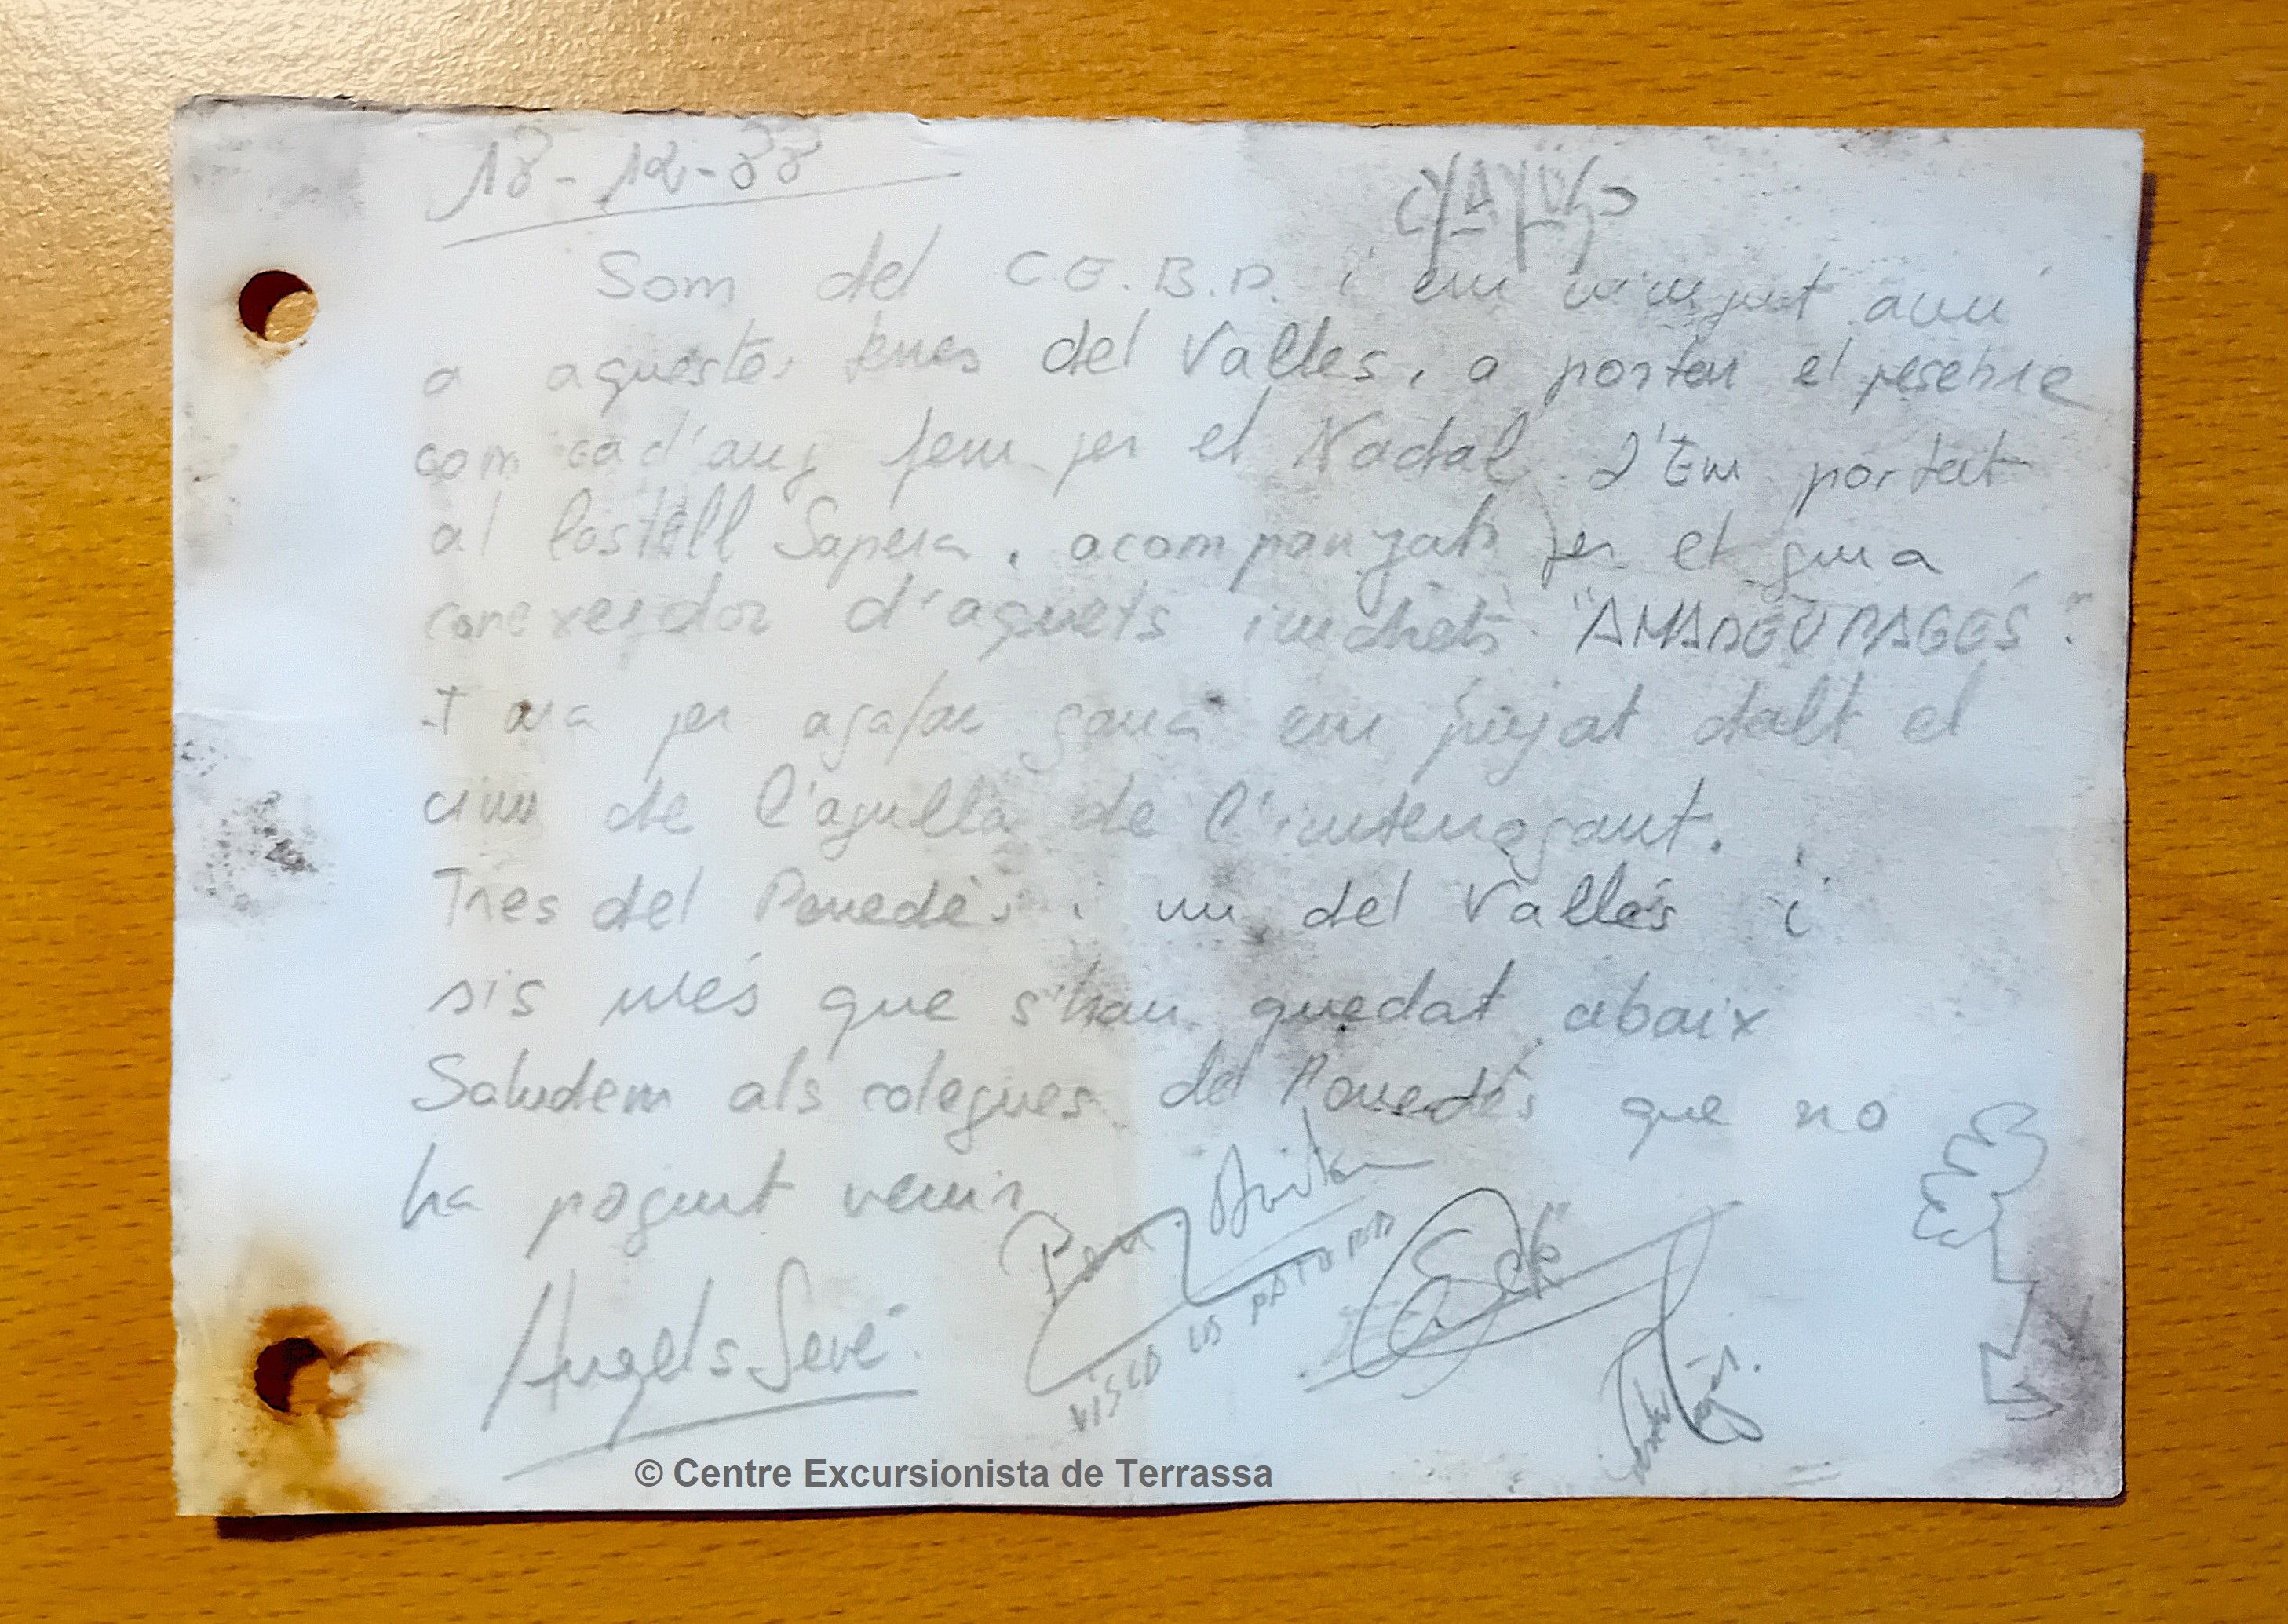 18-12-88
Som del C.E.B.P. i em vingut avui
a aquestes terres del Valles, a portar el pesebre
com cad'any fem per el Nadal l'Em portat
al Castell Sapera, acompanyats per el guia
coneixedor d'aquets indrets "AMADEU PAGÉS".
I ara per agafar gana em pujat dalt el
cim de l'agulla de l'interrogant.
Tres del Penedès i un del Vallés i
sis més que s'han quedat abaix
Saludem als colegues del Penedés que no
ha pogut venir
Angels Sevé.
VISCA LA PATUM
© Centre Excursionista de Terrassa